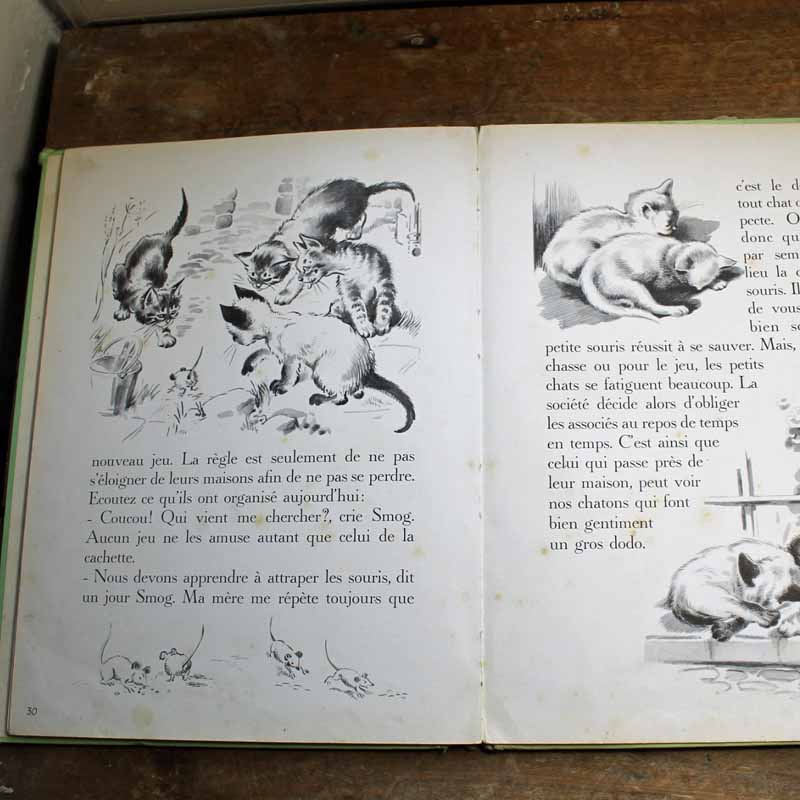 nouveau jeu. La règle est seulement de ne pas
s'éloigner de leurs maisons afin de ne pas se perdre.
Ecoutez ce qu'ils ont organisé aujourd'hui:
- Coucou! Qui vient me chercher?, crie Smog.
Aucun jeu ne les amuse autant que celui de la
cachette.
- Nous devons apprendre à attraper les souris, dit
un jour Smog. Ma mère me répète toujours que
30
c'est le
tout chat
pecte.
donc
par
lieu la
souris.
de
bien
petite souris réussit à se sauver. Mais,
chasse ou pour le jeu, les petits
chats se fatiguent beaucoup. La
société décide alors d'obliger
les associés au repos de temps
en temps. C'est ainsi que
celui qui passe près de
leur maison, peut voir
nos chatons qui font
bien gentiment
un gros dodo.